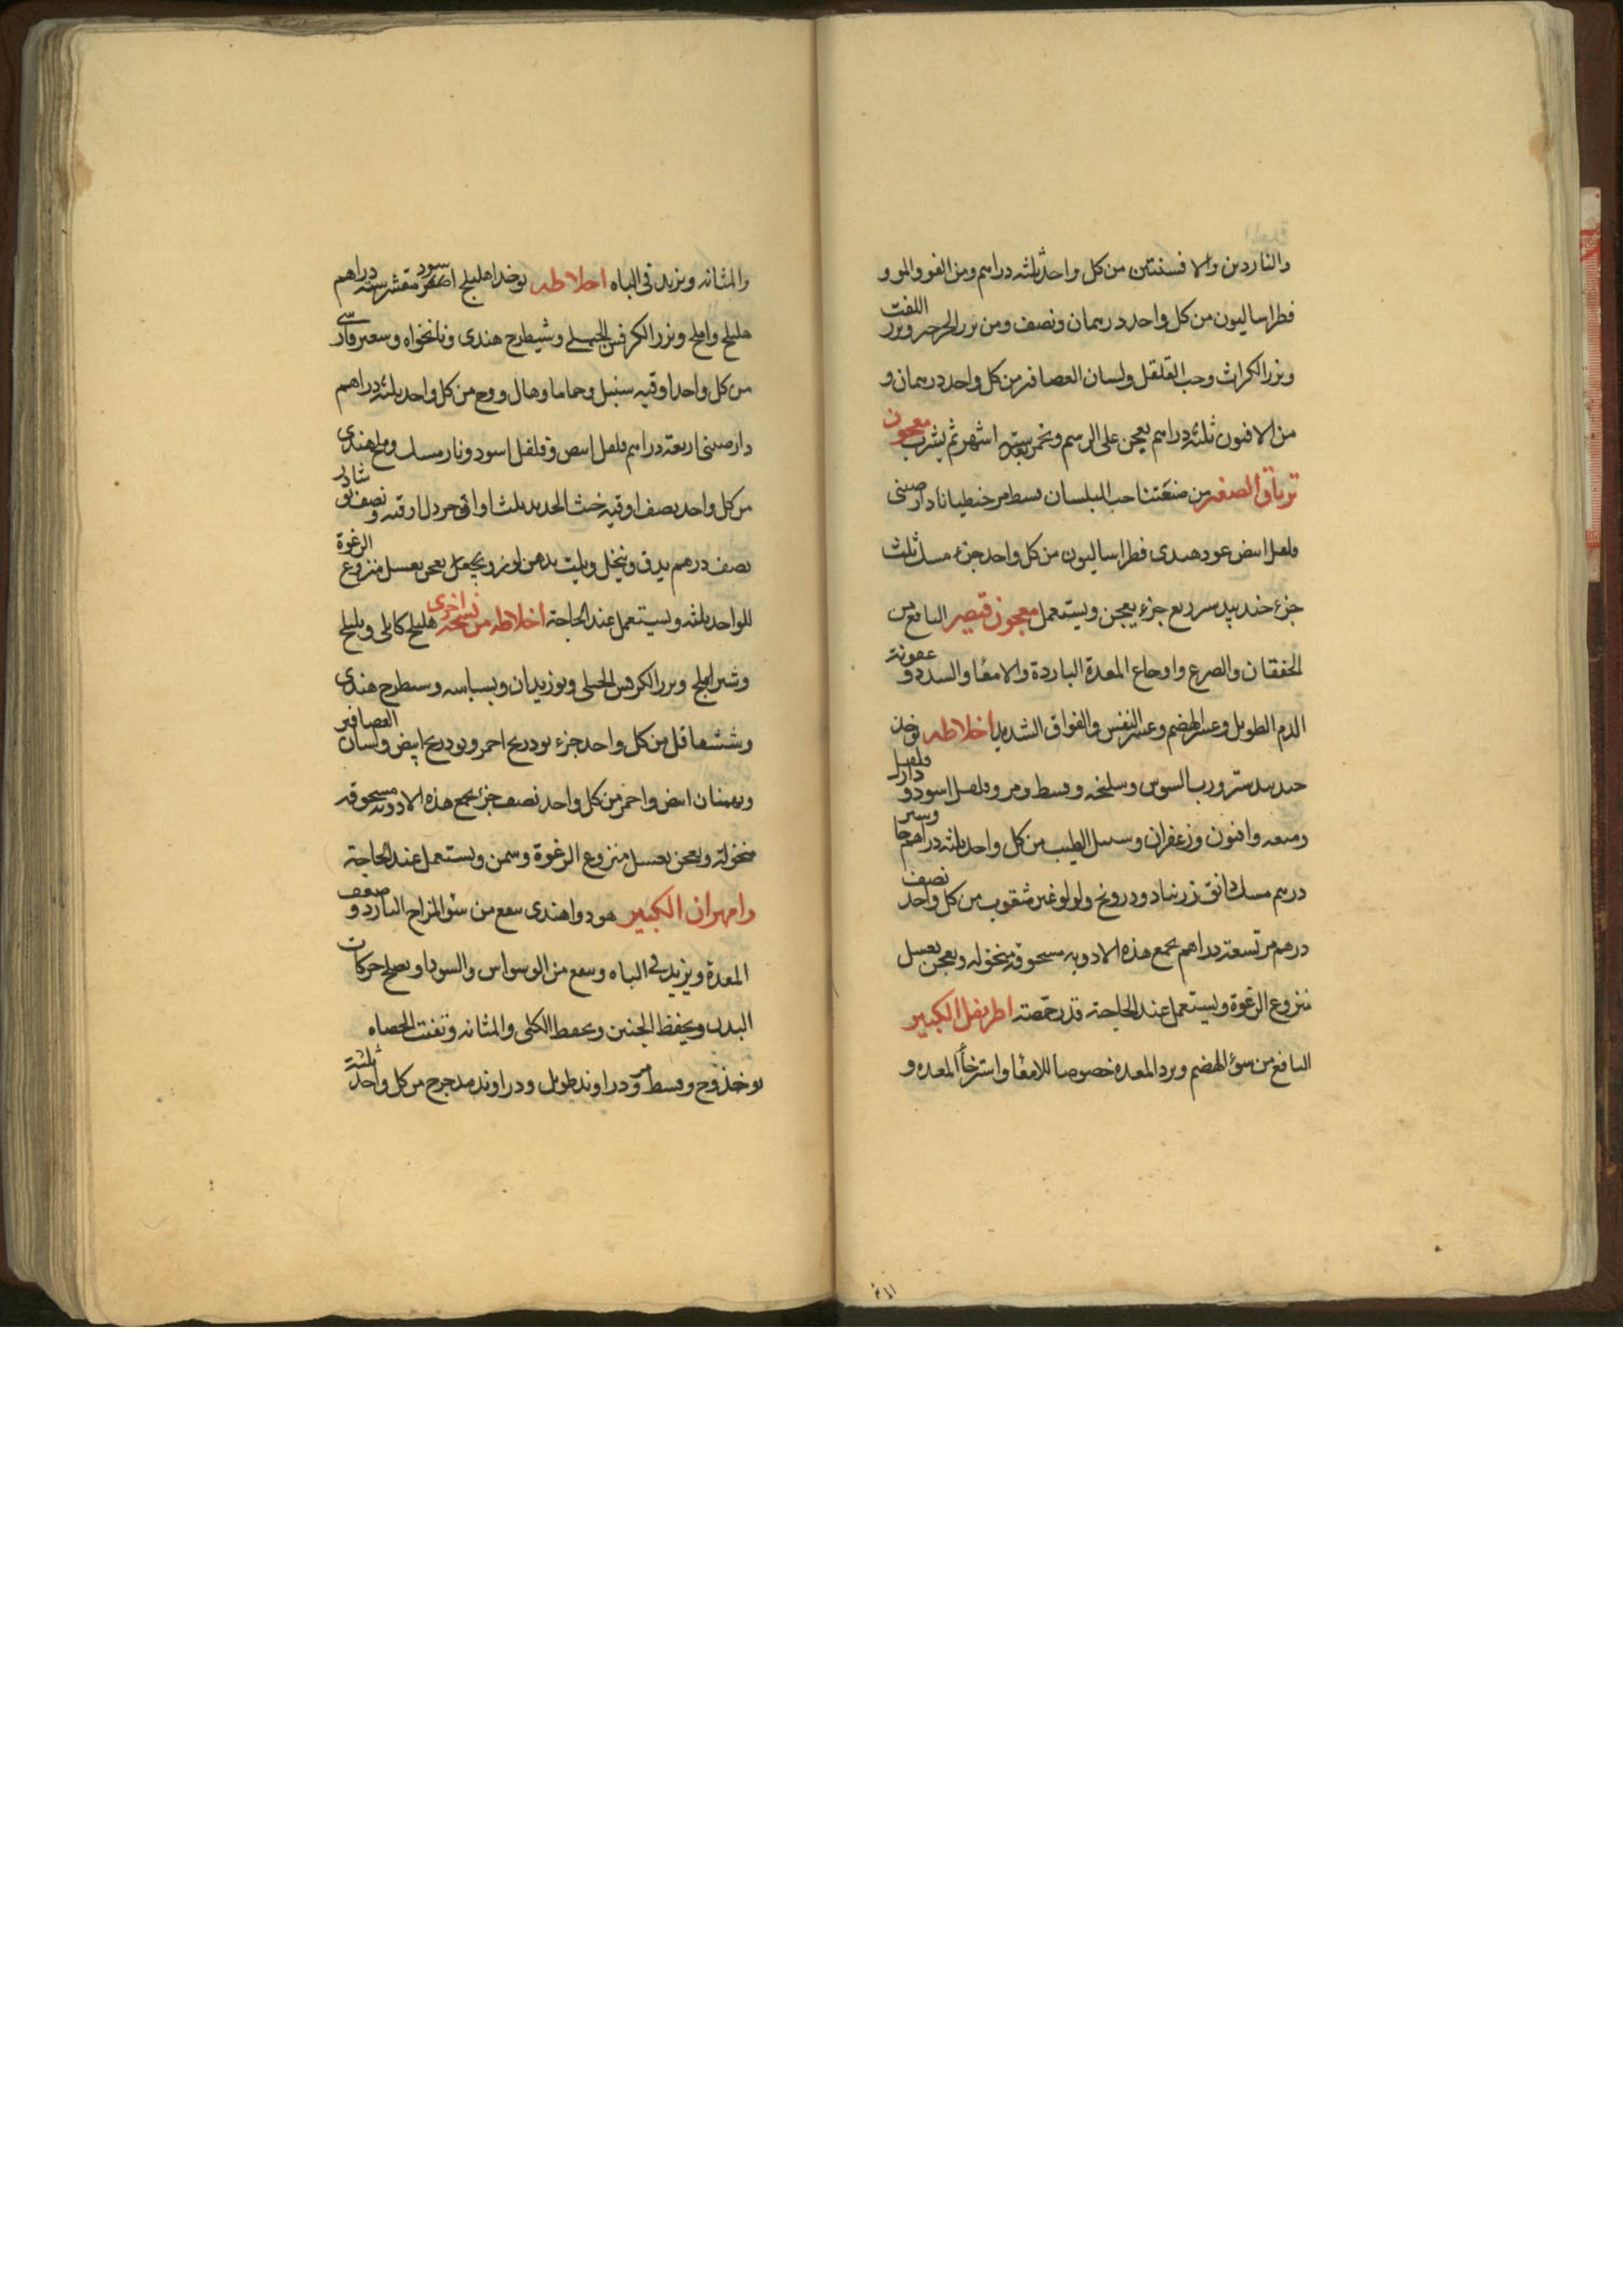 والناردين والافسنتين من كل واحد ثلثه دراهم ومن الفو والمو و
فطراساليون من كل واحد درهمان ونصف ومن بزر الجرجير وبزر اللفت
وبزر الكراث وحب القلقل ولسان العصافير من كل واحد درهمان و
من الافيون ثلثة دراهم يعجن على الرسم ويخمر ستة اشهر ثم يشرب معجون
ترياق الصغير من صنعتنا حب البلسان قسط مر جنطيانا دارصينى
فلفل ابيض عود هندى فطراساليون من كل واحد جزء مسك ثلث
جزء جندبيدستر ربع جزء يعجن ويستعمل معجون قيصر النافع من
الخفقان والصرع واوجاع المعدة الباردة والامعا والسدد و عفونة
الدم الطويل وعسر الهضم وعسر النفس والفواق الشديد اخلاطه يوخذ
جندبيدستر ورب السوس وسليخه وقسط ومر وفلفل اسود و دار فلفل
وميعه وافيون وزعفران وسنبل الطيب من كل واحد ثلثه دراهم
درهم مسك دانق زرنباد ودرونج ولولو غير مثقوب من كل واحد نصف
درهم مر تسعة دراهم يجمع هذه الادويه مسحوقه منخوله ويعجن بعسل
منزوع الرغوة ويستعمل عند الحاجة قدر حمصة اطريفل الكبير
النافع من سوء الهضم وبرد المعده خصوصا للامعا واسترخاء المعده و
والمثانه ويزيد فى الباه اخلاطه يوخذ اهليلج اصفر اسود مقشر سته دراهم
هليلج واملج وبزر الكرفس الجبلى وشيطرج هندى ونانخواه وسعتر فارسى
من كل واحد اوقيه سنبل وحماما وهال ووج من كل واحد ثلثه دراهم
دارصينى اربعة دراهم فلفل ابيض وفلفل اسود ونارمسك وملح هندى
من كل واحد نصف اوقيه خبث الحديد ثلث اواقى خردل اوقيه ونصف نوشادر
نصف درهم يدق وينخل ويلت بدهن لوز ويجعل يعجن بعسل منزوع الرغوة
للواحد ثلثه ويستعمل عند الحاجة اخلاطه من نسخه اخرى هليلج كابلى وبليلج
وشير املج وبزر الكرفس الجبلى وبوزيدان وبسباسه وشيطرج هندى
وششقاقل من كل واحد جزء تودريج احمر وتودريج ابيض ولسان العصافير
وبهمنان ابيض واحمر من كل واحد نصف جزء يجمع هذه الادويه مسحوقه
منخولة ويعجن بعسل منزوع الرغوة وسمن ويستعمل عند الحاجة
دامهران الكبير هو دوا هندى ينفع من سو المزاج البارد و ضعف
المعدة ويزيد فى الباه وينفع من الوسواس والسودا ويصلح حركات
البدن ويحفظ الجنين ويحفظ الكلى والمثانه وتفتت الحصاه
يوخذ وج وقسط مر ودراوند طويل ودراوند مدحرج من كل واحد ثلثة